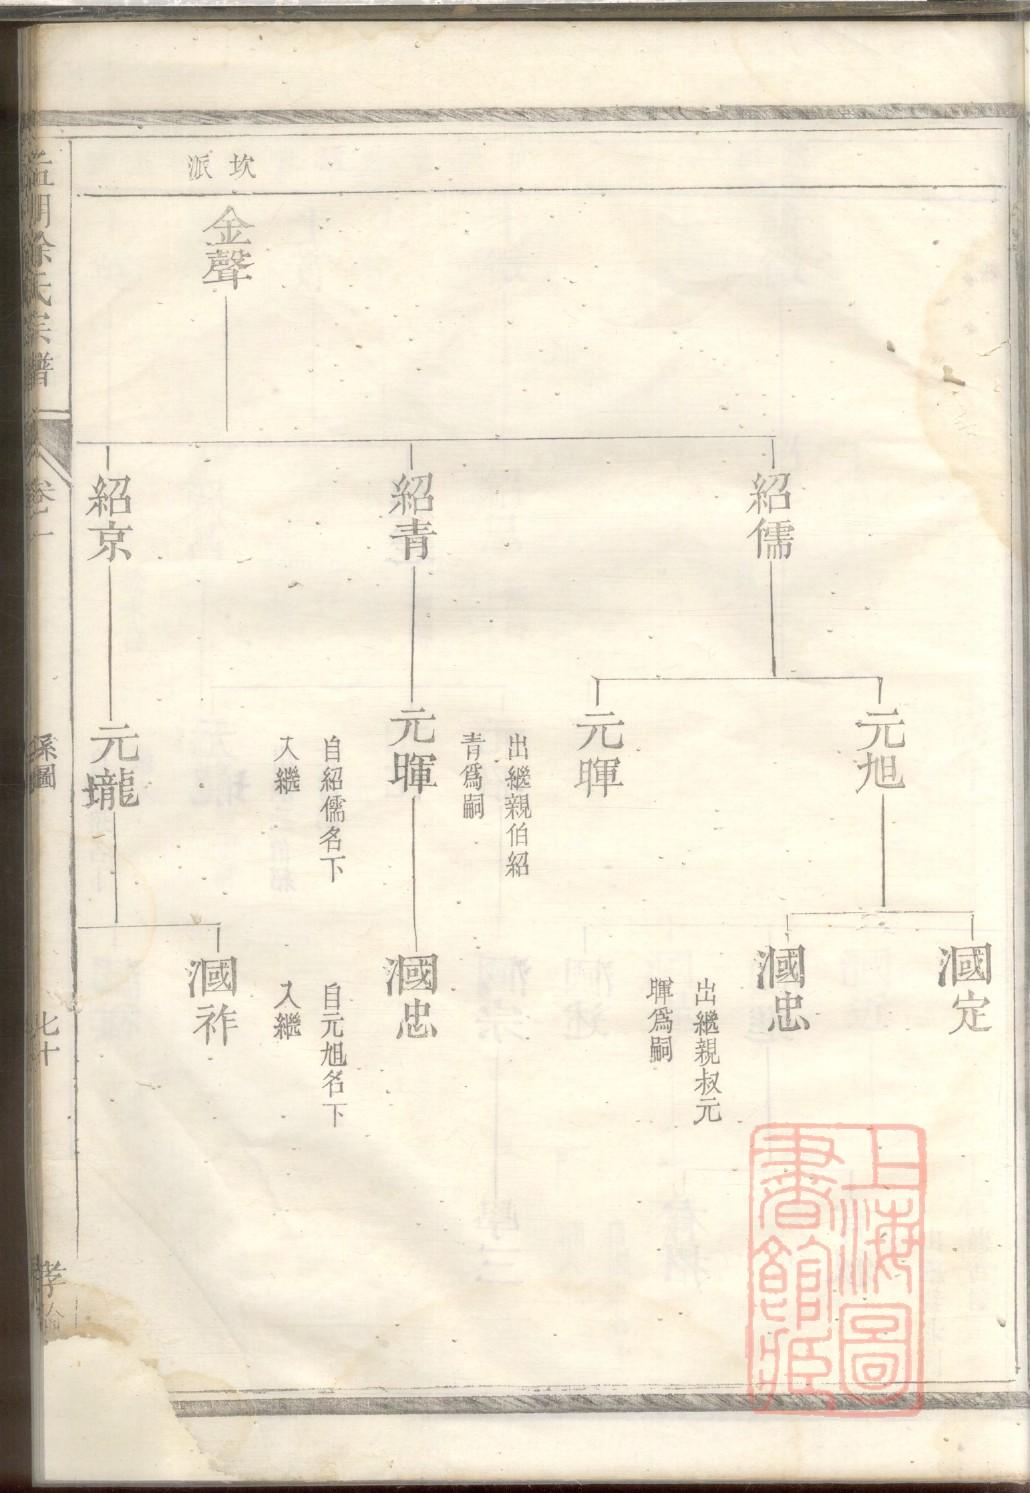 坎派
金聲
紹儒
紹青
紹京
元旭
元暉
出繼親伯紹
青爲嗣
元暉
自紹儒名下
入繼
元瓏
國定
國忠
出繼親叔元
暉爲嗣
國忠
自元旭名下
入繼
國祚
徐氏宗譜
卷一
系圖
七十
孝
上海圖
書館藏